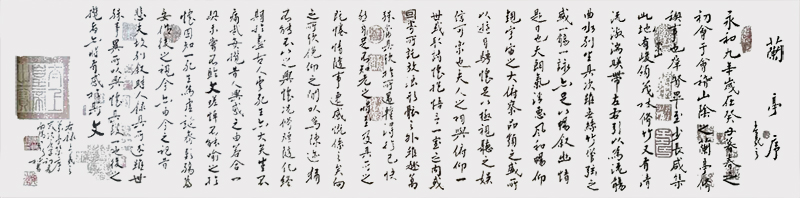 蘭亭序
王羲之
永和九年歲在癸丑暮春之
初會于會稽山陰之蘭亭脩
禊事也群賢畢至少長咸集
此地有峻領茂林脩竹又有清
流激湍暎帶左右引以為流觴
曲水列坐其次雖無絲竹管弦之
盛一觴一詠亦足以暢敘幽情
是日也天朗氣清惠風和暢仰
觀宇宙之大俯察品類之盛所
以遊目騁懷足以極視聽之娛
信可樂也夫人之相與俯仰一
世或取諸懷抱悟言一室之內或
因寄所託放浪形骸之外雖趣舍萬
殊靜躁不同當其欣於所遇暫得於己快
然自足不知老之將至及其所之
既惓情隨事遷感慨係之矣向
之所欣俛仰之間以為陳迹猶
不能不以之興懷況脩短隨化終
期於盡古人云死生亦大矣豈不
痛哉每攬昔人興感之由若合一
契未嘗不臨文嗟悼不能喻之於
懷固知一死生為虛誕齊彭殤為
妄作後之視今亦由今之視昔
悲夫故列敘時人錄其所述雖世
殊事異所以興懷其致一也後之
攬者亦將有感於斯文